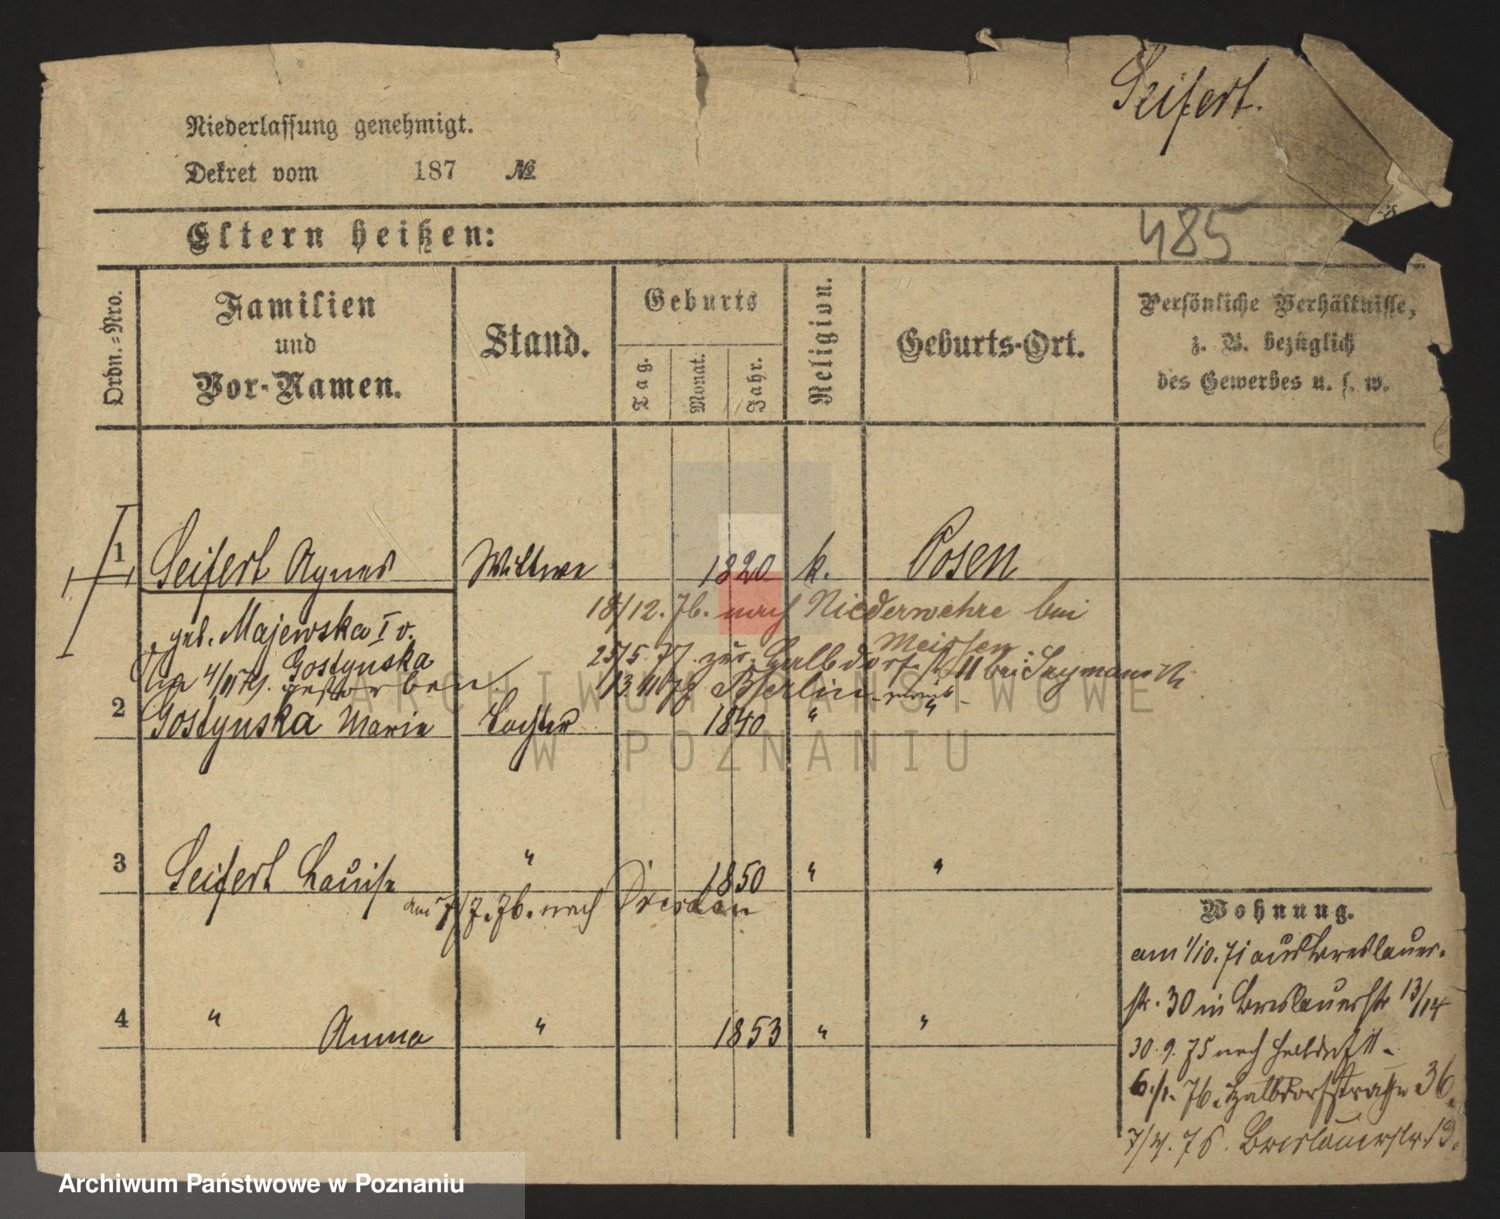 Seifert.
Niederlassung genehmigt.
Dekret vom 187 №
485
Eltern heißen:
Ordn.-Nro.
Familien
und
Vor-Namen.
Stand.
Geburts
Tag.
Monat.
Jahr.
Religion.
Geburts-Ort.
Persönliche Verhältnisse,
z. B. bezüglich
des Gewerbes u. s. w.
1 Seifert Agnes Wittwe 1820 k. Posen
geb. Majewska I v.
Gostynska
18/12. 76. nach Niederwehre bei
Meissen.
25/5. 77. zur. Halbdorfstr 11 bei
gestorben
Berlin
2 Gostynska Marie Tochter 1840 " "
3 Seifert Louise " 1850 " "
am 7/7. 76. nach Dresden
4 " Anna " 1853 " "
Wohnung.
am 1/10. 71 aus Breslauer-
str. 30 in Breslauerstr 13/14
30. 9. 75 nach Halbdf 11.
76. Halbdorfstrasse 36.
Breslauerstr. 19.
ARCHIWUM PAŃSTWOWE
W POZNANIU
Archiwum Państwowe w Poznaniu